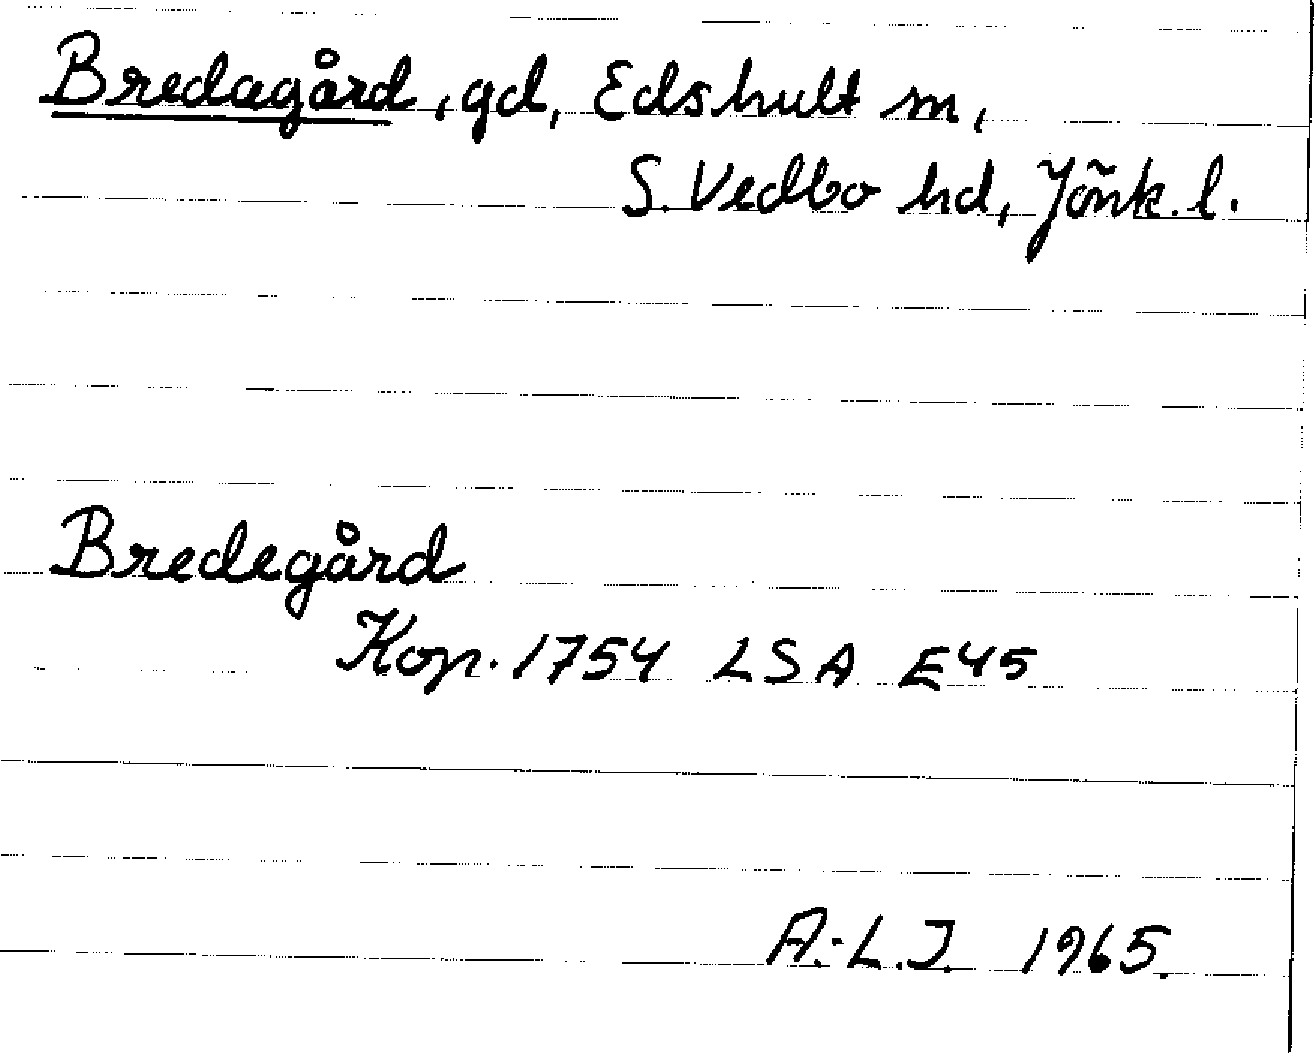 Bredagård, gd, Edshult sn,
S. Vedbo hd, Jönk. l.
Bredegård
Kop. 1754 LSA E45
A.-L.J. 1965.